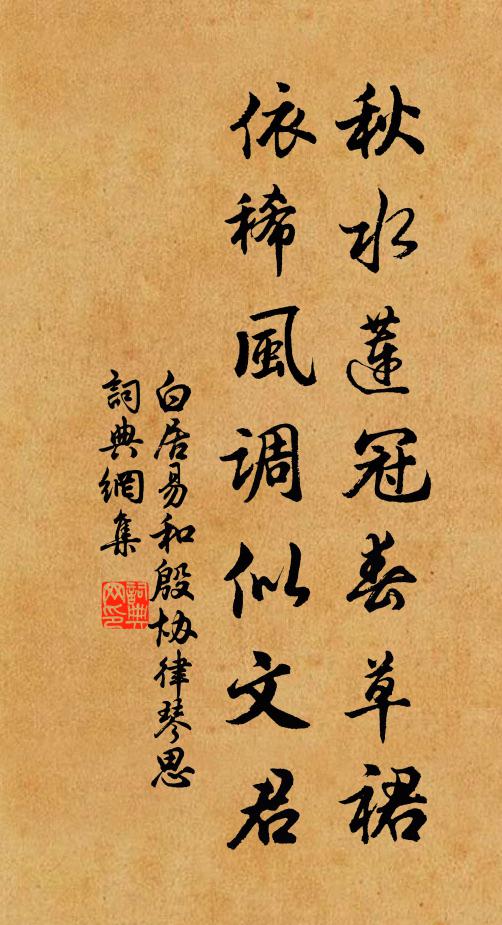 秋水蓮冠春草裙
依稀風调似文君
白居易和殷协律琴思
詞典網集
詞典
网印